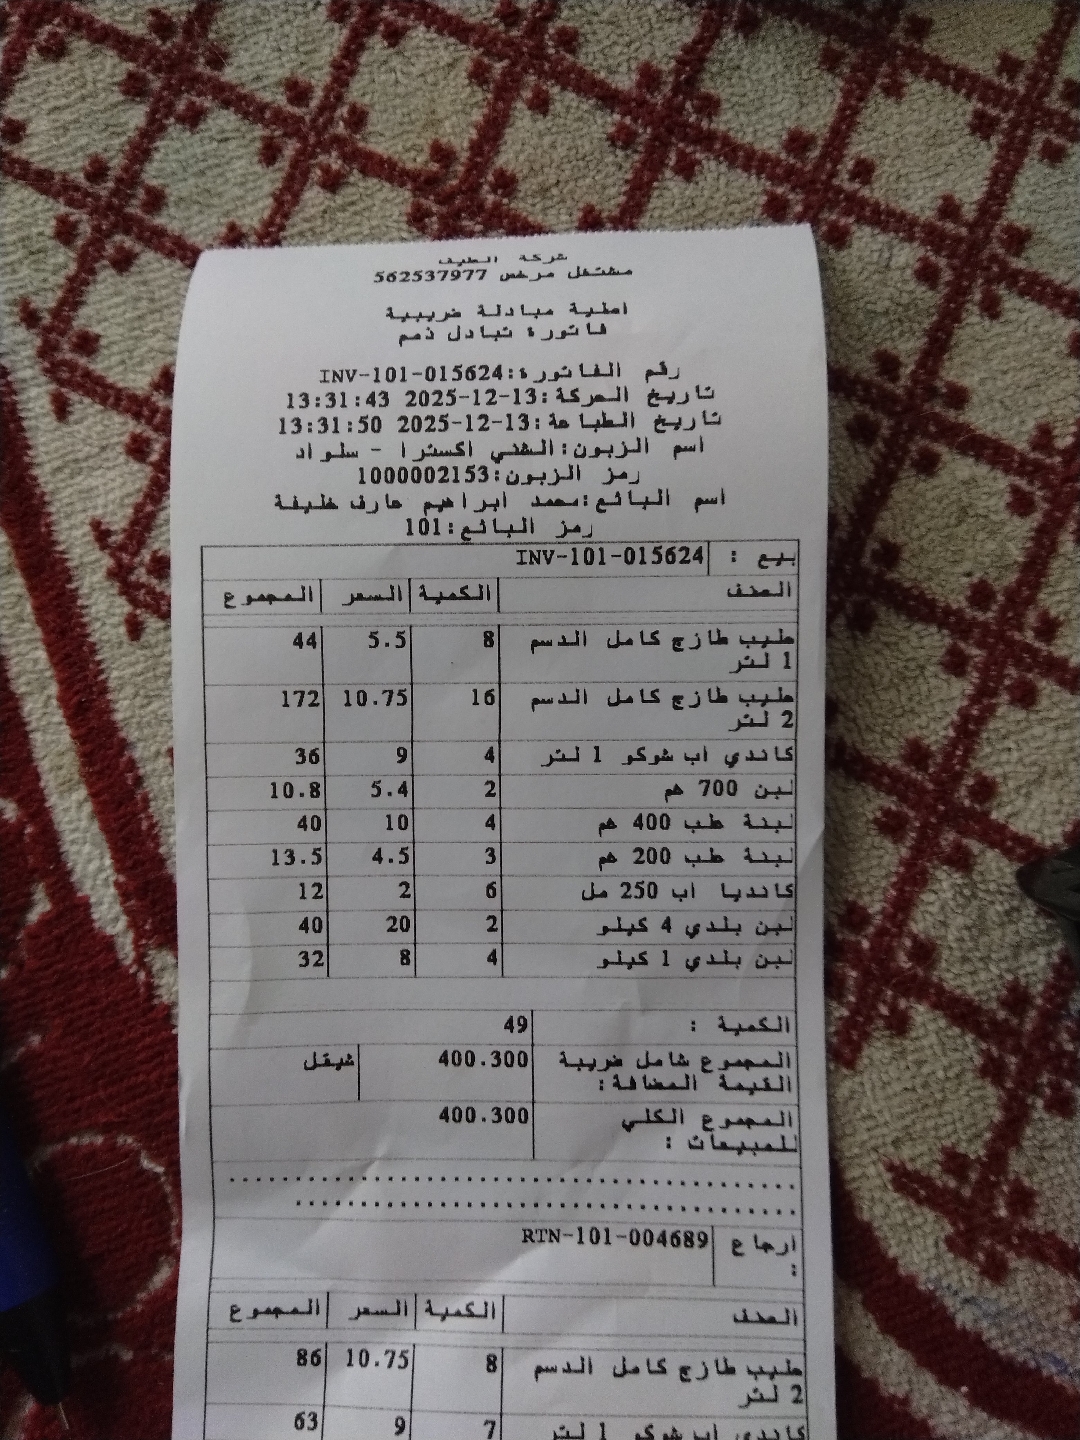 شركة الطيف
مشتغل مرخص 562537977
اصلية مبادلة ضريبية
فاتورة تبادل ذمم
رقم الفاتورة:INV-101-015624
تاريخ الحركة:13-12-2025 13:31:43
تاريخ الطباعة:13-12-2025 13:31:50
اسم الزبون:الشني اكسترا - سلواد
رمز الزبون:1000002153
اسم البائع:محمد ابراهيم عارف خليفة
رمز البائع:101
بيع : INV-101-015624
الصنف الكمية السعر المجموع
حليب طازج كامل الدسم 8 5.5 44
1 لتر
حليب طازج كامل الدسم 16 10.75 172
2 لتر
كاندي اب شوكو 1 لتر 4 9 36
لبن 700 غم 2 5.4 10.8
لبنة علب 400 غم 4 10 40
لبنة علب 200 غم 3 4.5 13.5
كانديا اب 250 مل 6 2 12
لبن بلدي 4 كيلو 2 20 40
لبن بلدي 1 كيلو 4 8 32
الكمية : 49
المجموع شامل ضريبة 400.300 شيقل
القيمة المضافة:
المجموع الكلي 400.300
للمبيعات :
ارجاع RTN-101-004689
:
الصنف الكمية السعر المجموع
حليب طازج كامل الدسم 8 10.75 86
2 لتر
كاندي اب شوكو 1 لتر 7 9 63